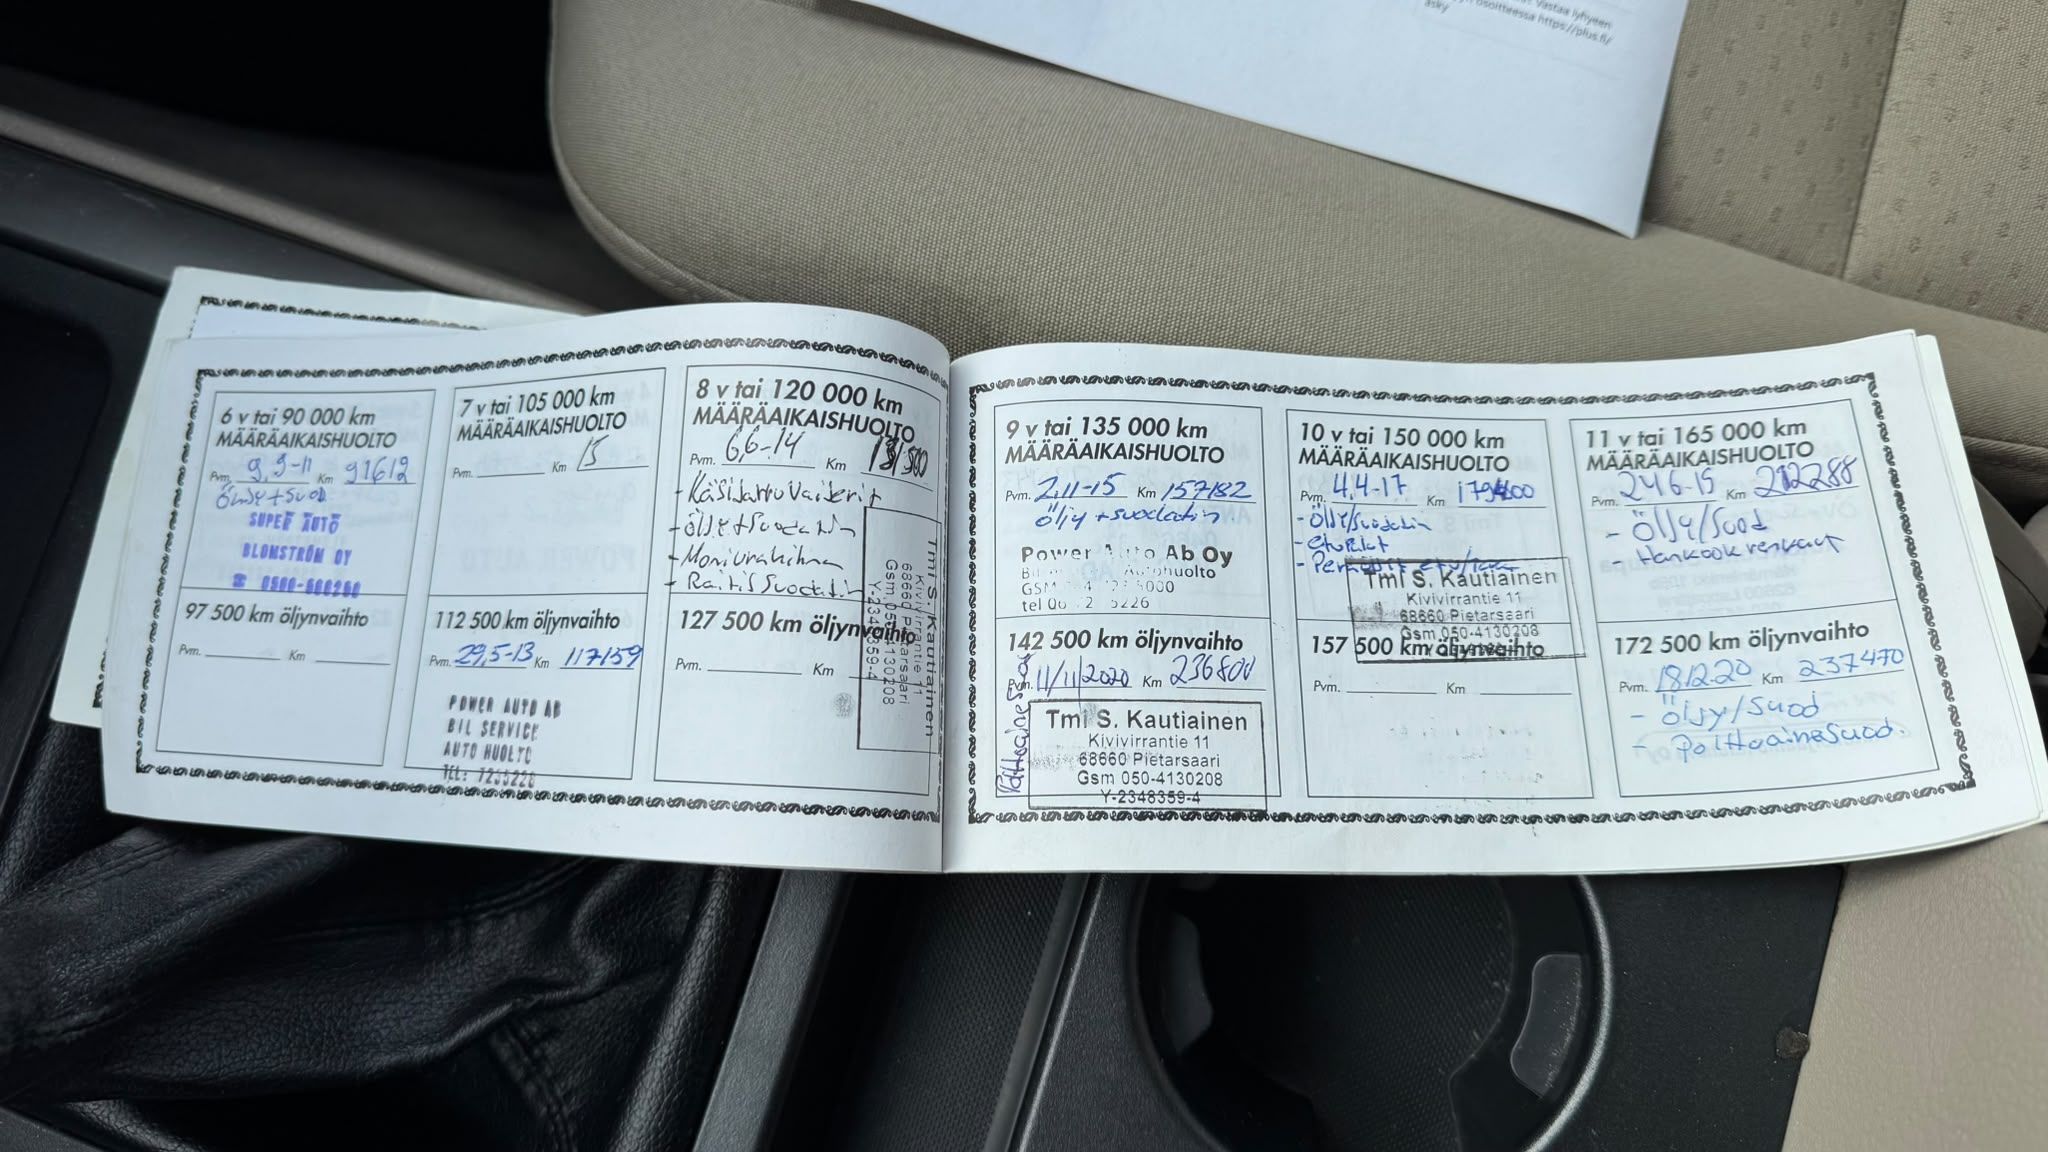 Vastaa lyhyeen
osoitteessa https://plus.fi/
asky
6 v tai 90 000 km
MÄÄRÄAIKAISHUOLTO
Pvm. 9,9-11 Km 91612
Öljy + suod.
SUPER AUTO
BLOMSTRÖM OY
☎ 0500-600260
97 500 km öljynvaihto
Pvm. Km
7 v tai 105 000 km
MÄÄRÄAIKAISHUOLTO
Pvm. Km 15
112 500 km öljynvaihto
Pvm. 29,5-13 Km 117159
POWER AUTO AB
BIL SERVICE
AUTO HUOLTO
TEL: 7235226
8 v tai 120 000 km
MÄÄRÄAIKAISHUOLTO
Pvm. 6,6-14 Km
- Käsijarruvaijerit
- Öljy + Suodatin
- Moniurahihna
- Raitis Suodatin
Tmi S. Kautiainen
Kivivirrantie 11
68660 Pietarsaari
Gsm 050-4130208
Y-2348359-4
127 500 km öljynvaihto
Pvm. Km
9 v tai 135 000 km
MÄÄRÄAIKAISHUOLTO
Pvm. 2,11-15 Km 157182
Öljy + suodatin
Power Auto Ab Oy
Autohuolto
GSM
tel 5226
142 500 km öljynvaihto
Pvm. 11/11/2020 Km 236800
Polttoaine Suod
Tmi S. Kautiainen
Kivivirrantie 11
68660 Pietarsaari
Gsm 050-4130208
Y-2348359-4
10 v tai 150 000 km
MÄÄRÄAIKAISHUOLTO
Pvm. 4,4-17 Km
- Öljy/Suodatin
- etupalat
Tmi S. Kautiainen
Kivivirrantie 11
68660 Pietarsaari
Gsm 050-4130208
157 500 km öljynvaihto
Pvm. Km
11 v tai 165 000 km
MÄÄRÄAIKAISHUOLTO
Pvm. 24 6-15 Km 212288
- Öljy/Suod
- Hankook renkaat
172 500 km öljynvaihto
Pvm. 18.12.20 Km 237470
- Öljy/Suod
- Polttoaine Suod.